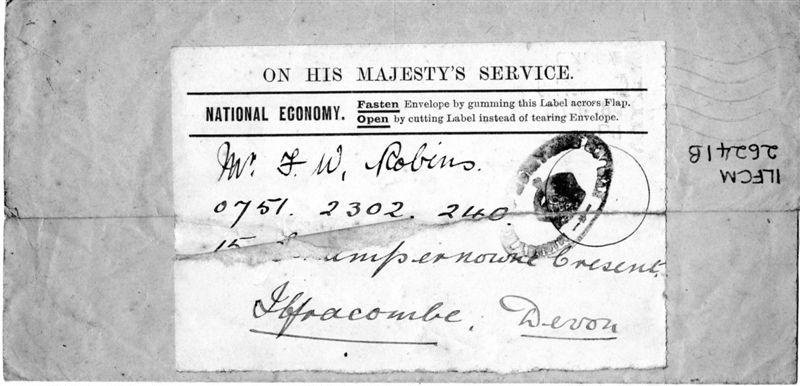 ON HIS MAJESTY'S SERVICE.
NATIONAL ECONOMY. Fasten Envelope by gumming this Label across Flap.
Open by cutting Label instead of tearing Envelope.
Mr. F. W. Robins.
0751. 2302. 240.
15 umpernowne Cresent.
Ilfracombe, Devon
ILFCM
26241B